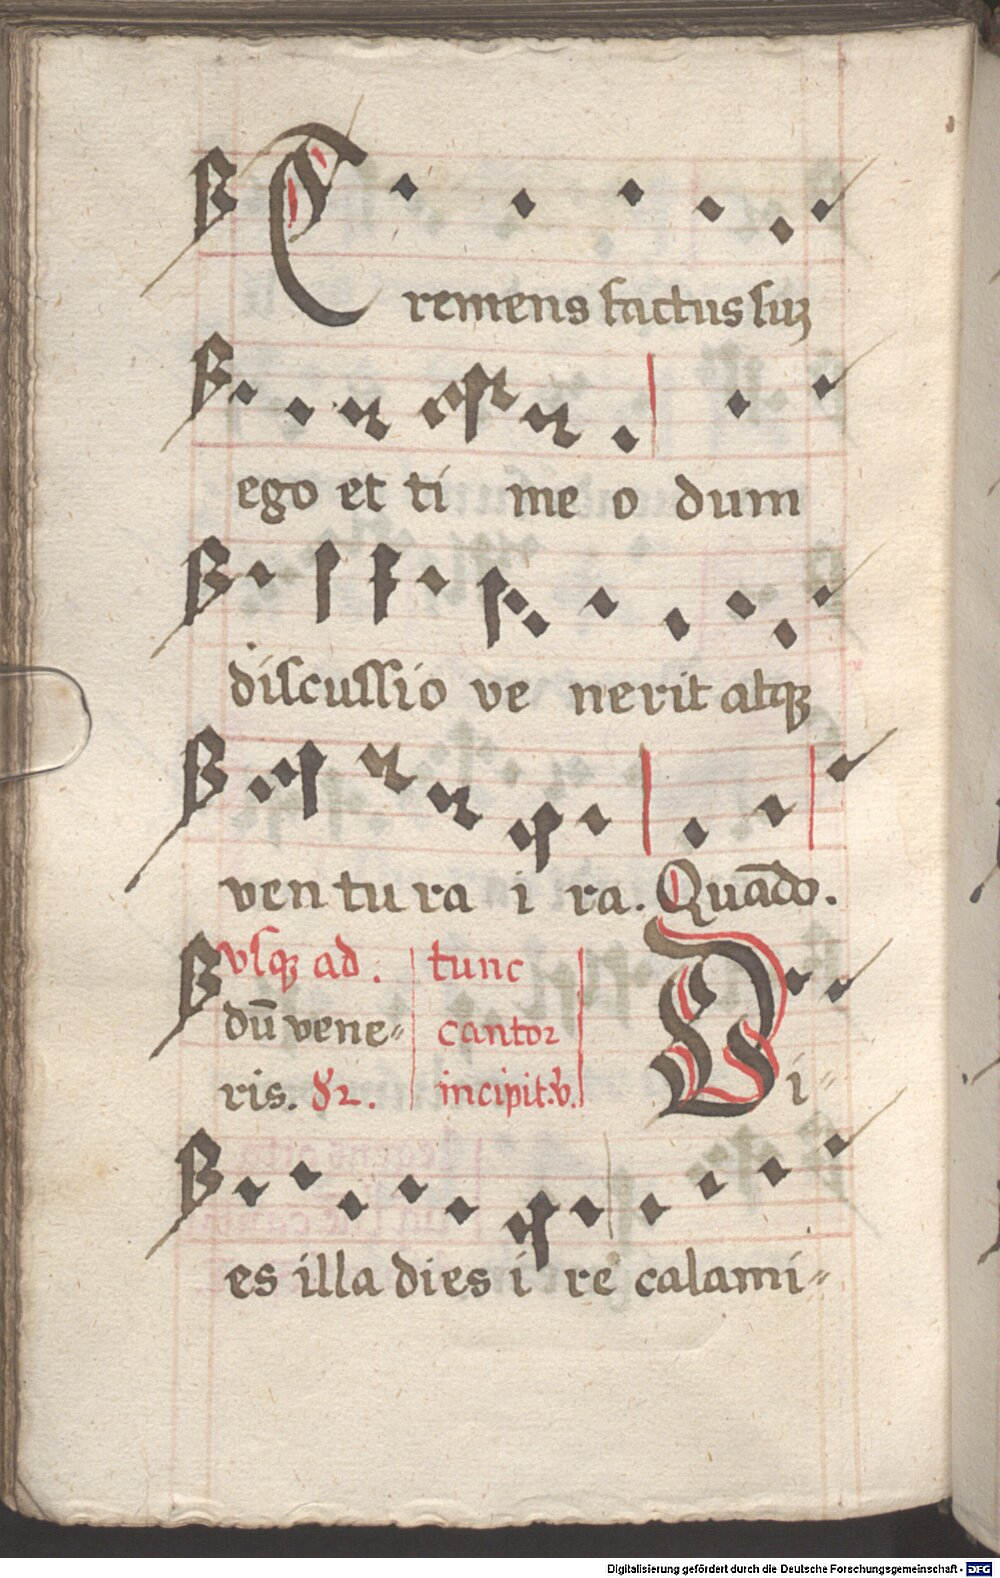 Tremens factus suꝫ
ego et ti me o dum
discussio ve nerit atqꝫ
ven tu ra i ra. Quādo.
vsqꝫ ad. tunc
dū vene⸗ cantor
ris. incipit. v̄. Di⸗
es illa dies i re calami⸗
Digitalisierung gefördert durch die Deutsche Forschungsgemeinschaft - DFG